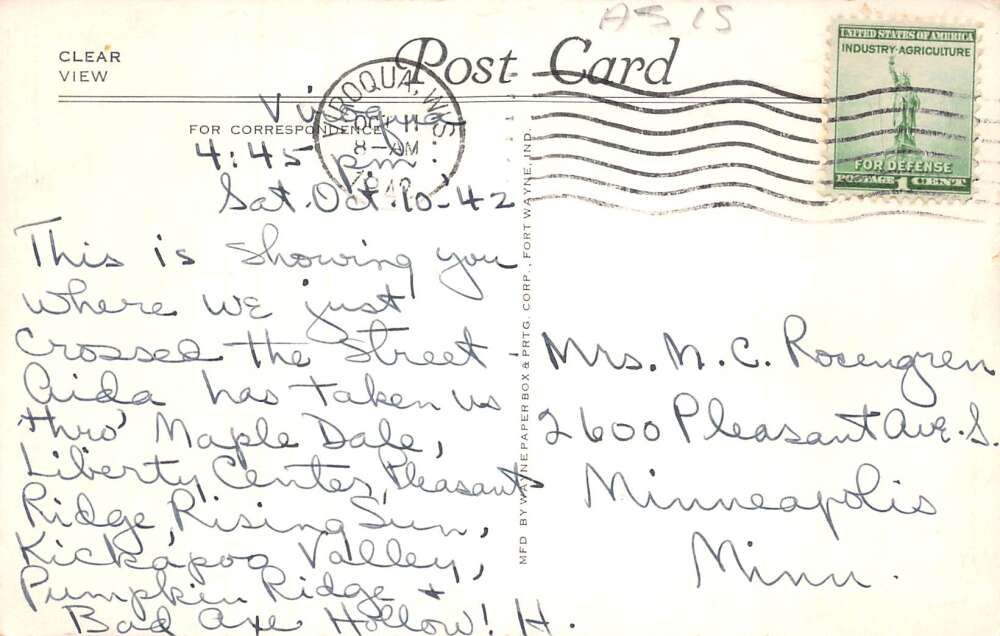 AS IS
CLEAR
VIEW
Post Card
FOR CORRESPONDENCE
VIROQUA, WIS.
OCT 11
8-AM
1942
UNITED STATES OF AMERICA
INDUSTRY-AGRICULTURE
FOR DEFENSE
POSTAGE 1 CENT
Viroqua
4:45 p.m.
Sat. Oct. 10-'42
This is showing you
where we just
crossed the street
Aida has taken us
thro' Maple Dale,
Liberty, Center, Pleasant
Ridge, Rising Sun,
Kickapoo Valley,
Pumpkin Ridge +
Bad Axe Hollow! H.
MFD BY WAYNE PAPER BOX & PRTG. CORP., FORT WAYNE, IND.
Mrs. N. C. Rosengren
2600 Pleasant Ave. S.
Minneapolis
Minn.